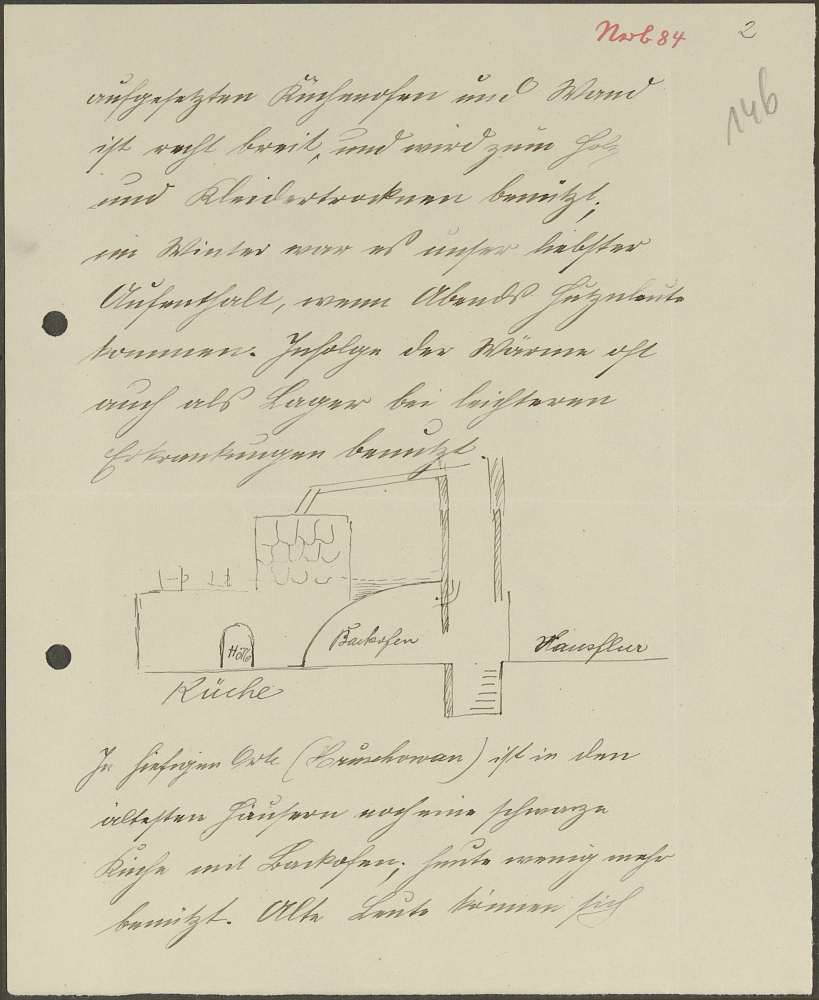 Nrb 84 2
14b
aufgesetzten Küchenofen und Wand
ist recht breit, und wird zum Holz
und Kleidertrocknen benützt;
im Winter war es unser liebster
Aufenthalt, wenn Abends Hutzaleute
kommen. Infolge der Wärme oft
auch als Lager bei leichteren
Erkrankungen benutzt
Hölle
Backofen
Hausflur
Küche
In hiesigen Orte ist in den
ältesten Häusern noch eine schwarze
Küche mit Backofen; heute wenig mehr
benützt. Alte Leute können sich